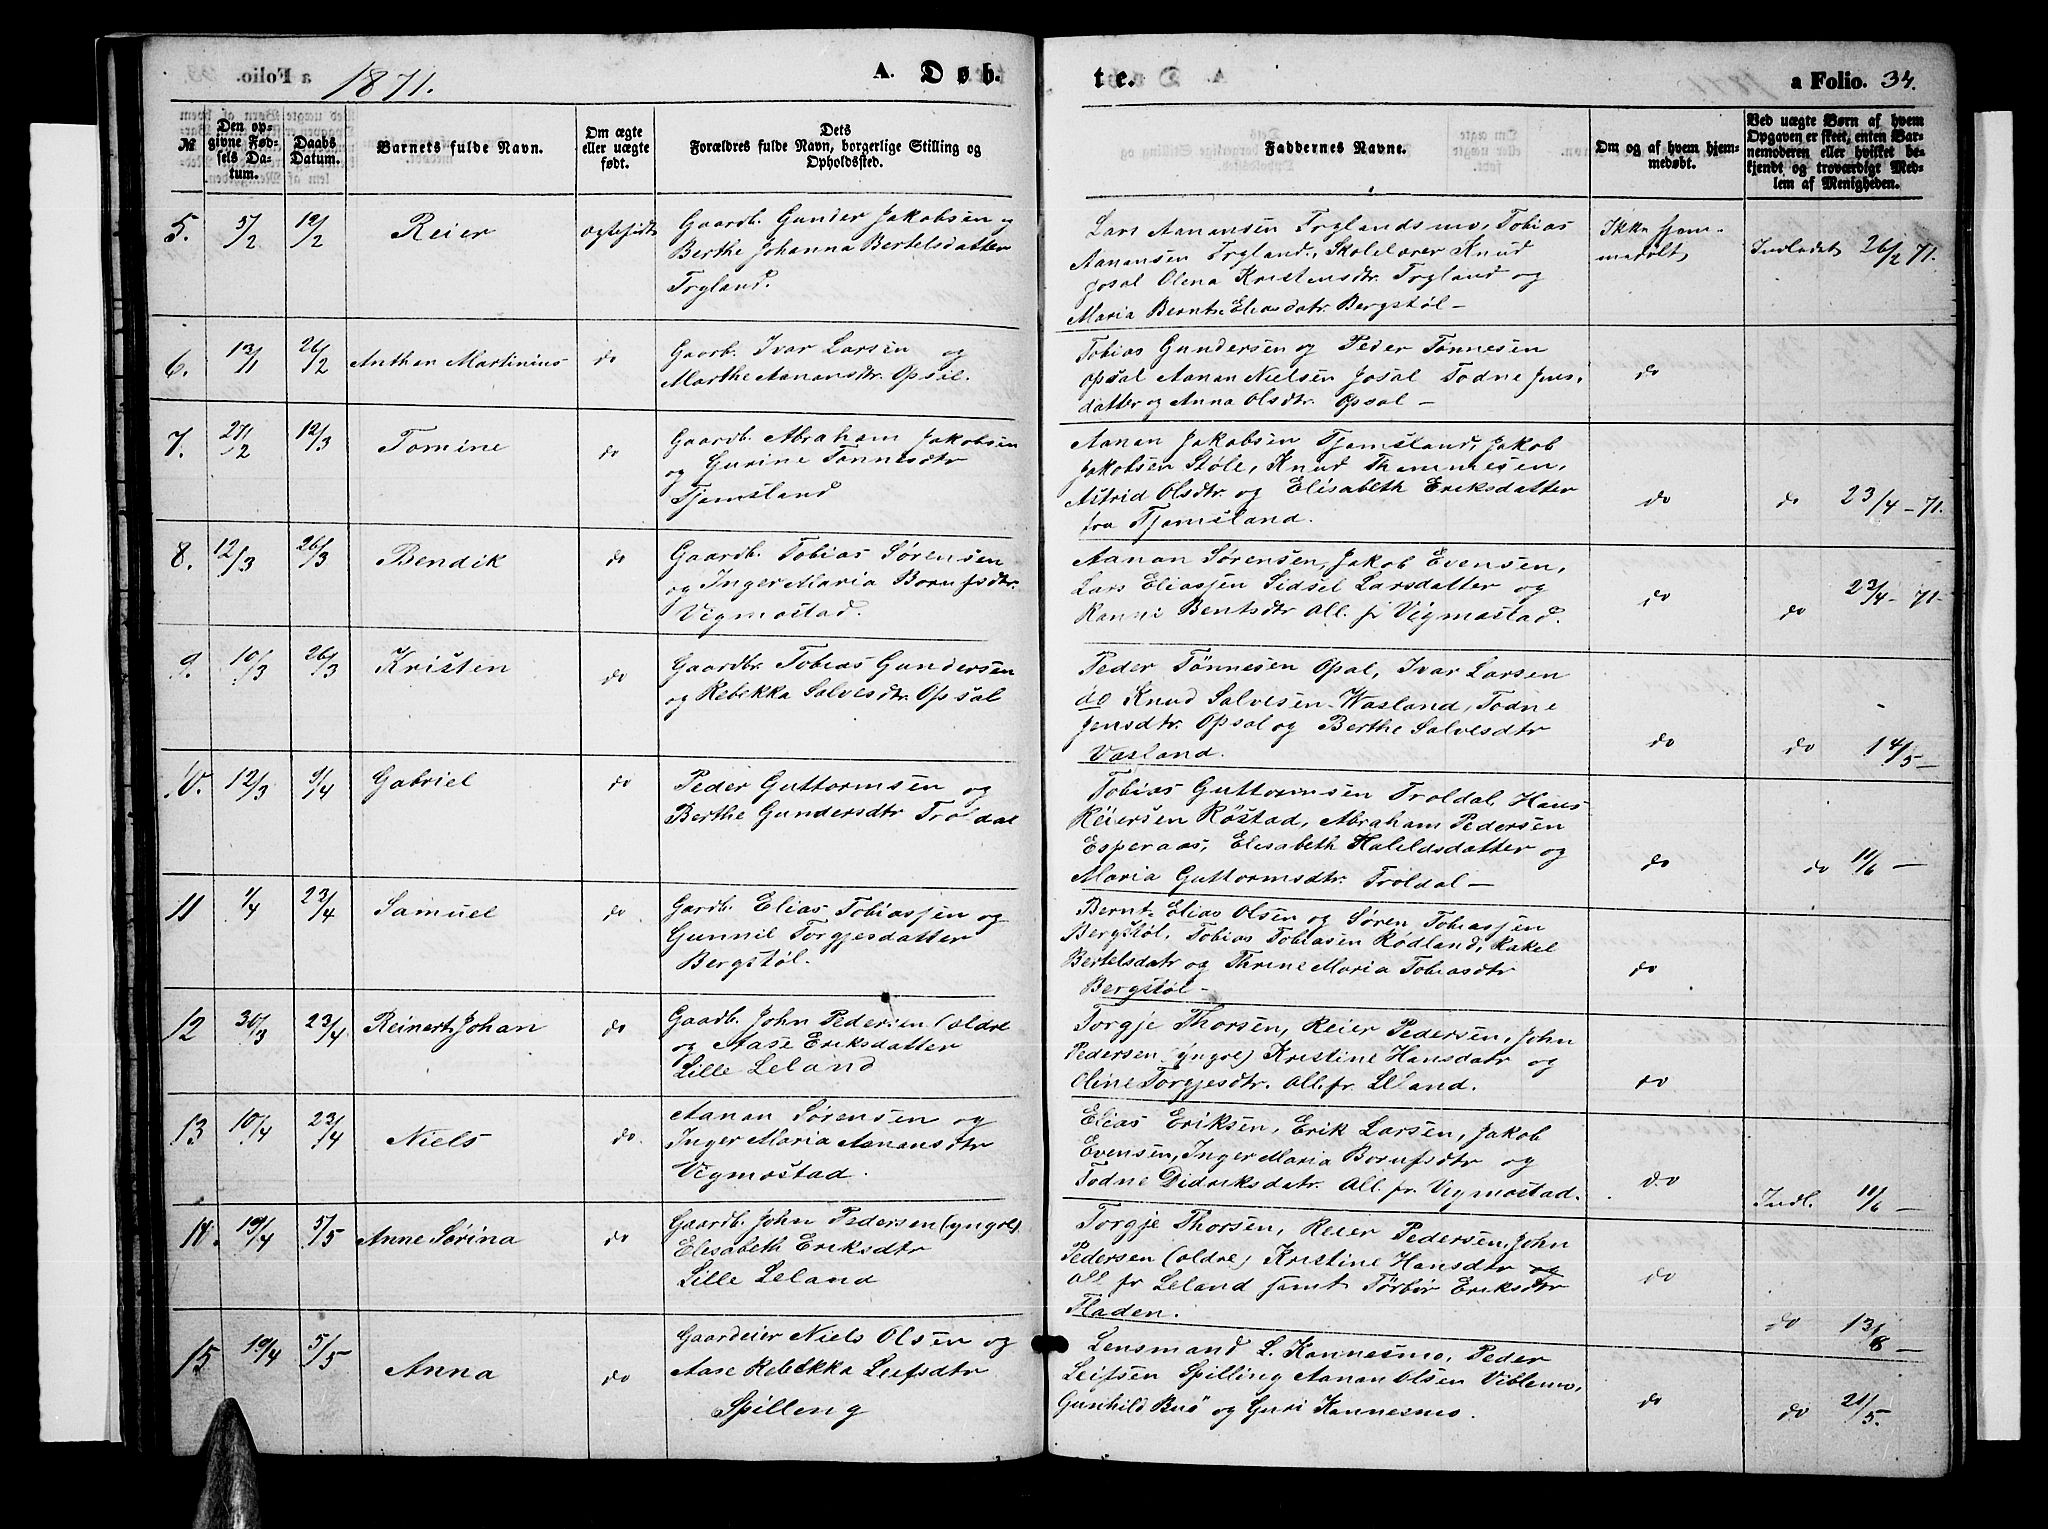 1871.
A. Døb
te.
a Folio. 34.
№
Den opgivne Fødsels Datum.
Daabs Datum.
Barnets fulde Navn.
Om ægte eller uægte født.
Dets
Forældres fulde Navn, borgerlige Stilling og
Opholdssted.
Faddernes Navne.
Om og af hvem hjemmedøbt.
Ved uægte Børn af hvem
Opgaven er skeet, enten Barnemoderen
eller hvilket bekjendt
og troværdigt Medlem
af Menigheden.
5. 5/2 12/2 Reier
Gaardb. Gunder Jakobsen og
Berthe Johanna Bertelsdatter
Trygland.
Lars Aanensen Tryglandsmo, Tobias
Aanensen Trygland, Skolelærer Knud
Josal Olena Kristensdtr. Trygland og
Maria Bernt-Eliasdatr. Bergstøl –
Ikke hjemmedøbt
Indladet 26/2 71.
6. 13/1 26/2 Anthon Martinius do
Gaardb. Ivar Larsen og
Marthe Aanansdtr. Opsal.
Tobias Gundersen og Peder Tønnesen
Opsal Aanan Nielsen Josal Todne Jensdatter
og Anna Olsdtr. Opsal –
do
7. 27/2 12/3 Tomine do
Gaardb. Abraham Jakobsen
og Gurine Tønnesdtr
Tjomsland
Aanan Jakobsen Tjomsland, Jakob
Jakobsen Støle, Knud Thommesen,
Astrid Olsdtr. og Elisabeth Eriksdatter
fra Tjomsland.
do do 23/4 – 71.
8. 12/3 26/3 Bendik do
Gaardb. Tobias Sørensen
og Inger Maria Bornfsdtr.
Vigmostad.
Aanan Sørensen, Jakob Evensen,
Lars Eliasjen Sidsel Larsdatter og
Ranni Bentsdtr All. fr Vigmostad.
do do 23/4 – 71 –
9. 10/3 26/3 Kristen do
Gaardbr. Tobias Gundersen
og Rebekka Salvesdtr. Opsal
Peder Tønnesen Opsal, Ivar Larsen
do Knud Salvesen Wasland, Todne
Jensdtr. Opsal og Berthe Salvesdtr
Vasland.
do do 14/5 –
10. 12/3 9/4 Gabriel do
Peder Guttormsen og
Berthe Gundersdtr Troldal
Tobias Guttormsen Troldal, Hans
Reiersen Røstad, Abraham Pedersen
Esperaas, Elisabeth Haleldsdatter og
Maria Guttormsdtr. Troldal –
do do 11/6 –
11 1/4 23/4 Samuel do
Gardb. Elias Tobiasjen og
Gunnil Torgjesdatter
Bergstøl.
Bernt-Elias Olsen og Søren Tobiasjen
Bergstøl, Tobias Tobiasen Rødland, Rakel
Bertelsdatr og Thrine Maria Tobiasdtr
Bergstøl –
do
12 30/3 23/4 Reinert Johan do
Gaardb. John Pedersen (ældre
og Aase Eriksdatter
Lille Leland
Torgje Thorsen, Reier Pedersen, John
Pedersen (yngre) Kristine Hansdatr og
Oline Torgjesdtr. All. fr. Leland.
do
13 10/4 23/4 Niels do.
Aanan Sørensen og
Inger Maria Aanansdtr
Vigmostad.
Elias Eriksen, Erik Larsen, Jakob
Evensen, Inger Maria Bornfsdtr og
Todne Didriksdatr. All. fr. Vigmostad.
do Indl. 11/6 –
14. 19/4 5/5 Anne Sørina do
Gaardb. John Pedersen (yngre)
Elisabeth Eriksdtr
Lille Leland
Torgje Thorsen, Reier Pedersen, John
Pedersen (ældre) Kristine Hansdtr og
All fr Leland samt Torbør Eriksdtr
Fladen.
do do 13/8 –
15 19/4 5/5 Anna do
Gaardeier Niels Olsen og
Aase Rebekka Leifsdtr
Spilling
Lensmand L. Kannesmo, Peder
Leifsen Spilling Aanan Olsen Viblemo,
Gunhild Buø og Guri Kannesmo.
do do 21/5.